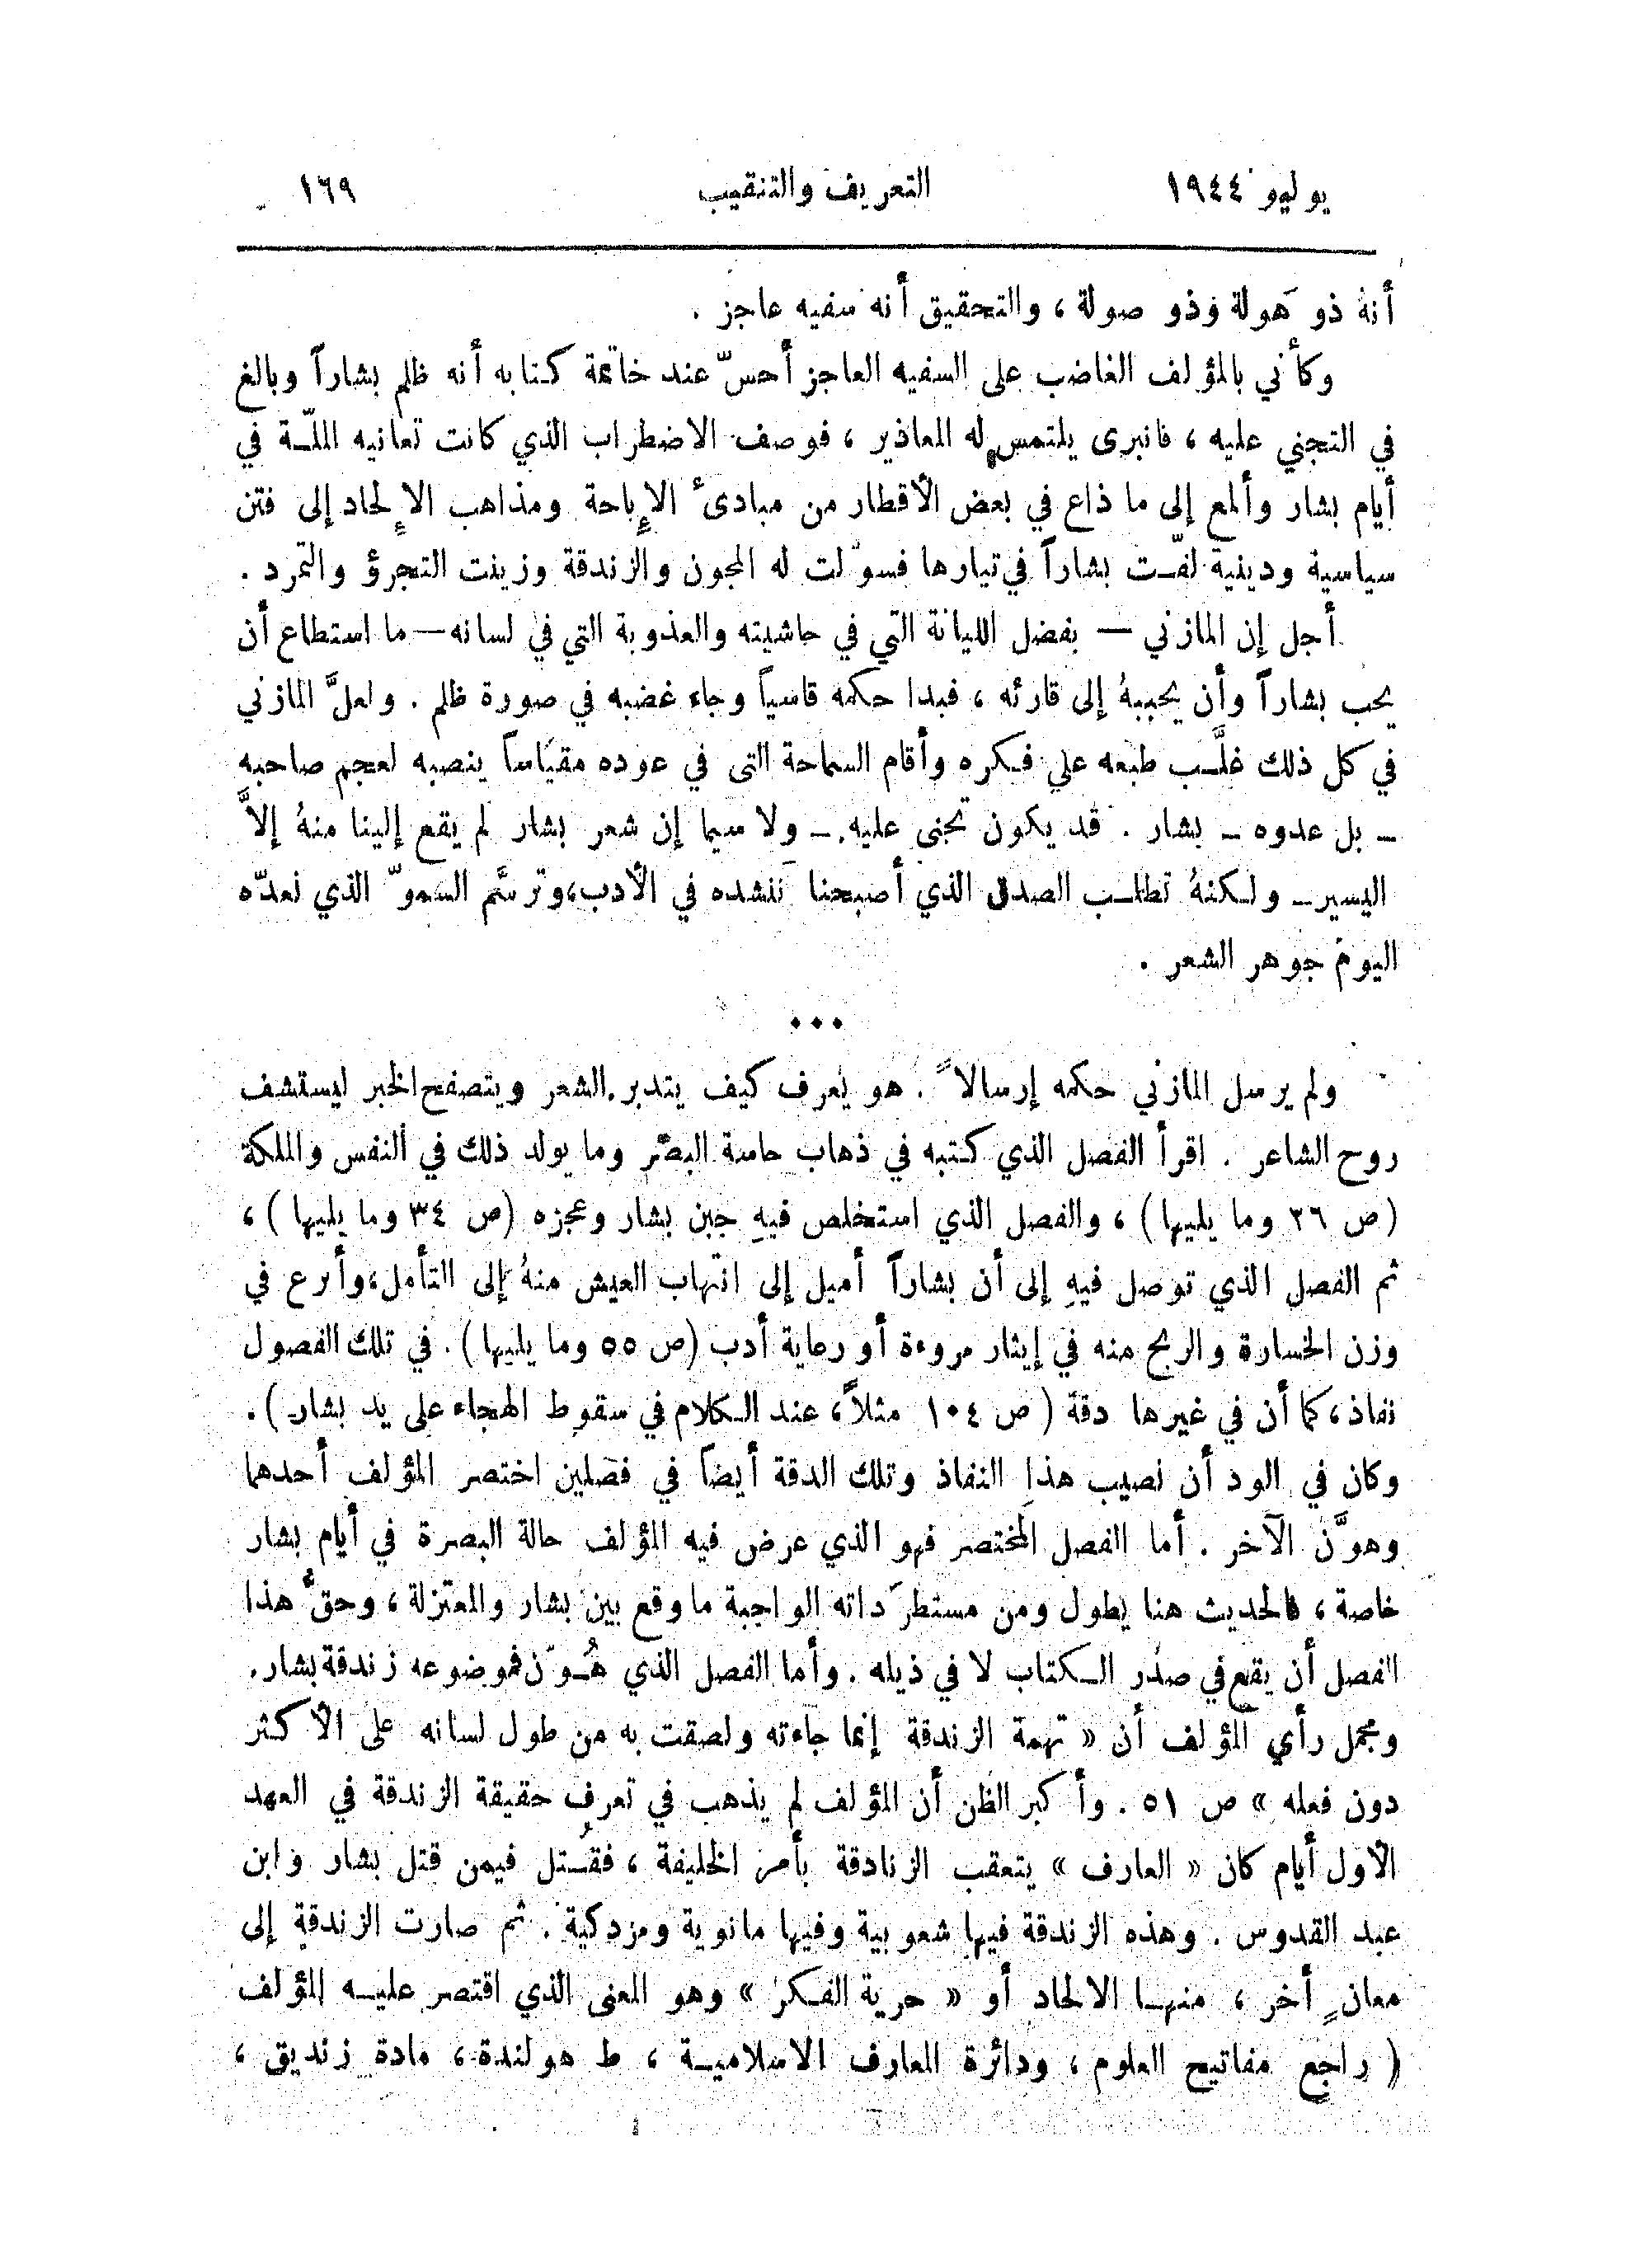 يوليو ١٩٤٤
التعريف والتنقيب
١٦٩
أنهُ ذو هَولة وذو صولة ، والتحقيق أنه سفيه عاجز .
وكأني بالمؤلف الغاضب على السفيه العاجز أحسّ عند خاتمة كتابه أنه ظلم بشاراً وبالغ
في التجني عليه ، فانبرى يلتمس له المعاذير ، فوصف الاضطراب الذي كانت تعانيه الملّـة في
أيام بشار وألمع إلى ما ذاع في بعض الأقطار من مبادئ الإِباحة ومذاهب الإِلحاد إلى فتن
سياسية ودينية لفّـت بشاراً في تيارها فسوّلت له المجون والزندقة وزينت التجرؤ والتمرد .
أجل إن المازني — بفضل الليانة التي في حاشيته والعذوبة التي في لسانه — ما استطاع أن
يحب بشاراً وأن يحببهُ إلى قارئه ، فبدا حكمه قاسياً وجاء غضبه في صورة ظلم . ولعلَّ المازني
في كل ذلك غلَّـب طبعه على فـكره وأقام السماحة التى في عوده مقياساً ينصبه لعجم صاحبه
ــ بل عدوه ــ بشار . قد يكون تجنى عليه ــ ولا سيما إن شعر بشار لم يقع إلينا منهُ إلاَّ
اليسير ــ ولـكنهُ تطلـب الصدق الذي أصبحنا نَنشده في الأدب، وترسَّم السموّ الذي نعدّه
اليوم جوهر الشعر .
•••
ولم يرسل المازني حكمه إرسالاً . هو يعرف كيف يتدبر الشعر ويتصفح الخبر ليستشف
روح الشاعر . اقرأ الفصل الذي كـتبه في ذهاب حاسة البصر وما يولد ذلك في النفس والملكة
(ص ٢٦ وما يليها) ، والفصل الذي استخلص فيهِ جبن بشار وعجزه (ص ٣٤ وما يليها) ،
ثم الفصل الذي توصل فيهِ إلى أن بشاراً أميل إلى انتهاب العيش منهُ إلى التأمل، وأبرع في
وزن الخسارة والربح منه في إيثار مروءة أو رعاية أدب (ص ٥٥ وما يليها) . في تلك الفصول
نفاذ، كما أن في غيرها دقة (ص ١٠٤ مثلاً، عند الـكلام في سقوط الهجاء على يد بشار) .
وكان في الود أن نصيب هذا النفاذ وتلك الدقة أيضاً في فصلين اختصر المؤلف أحدهما
وهوَّن الآخر . أما الفصل المختصر فهو الذي عرض فيه المؤلف حالة البصرة في أيام بشار
خاصة ، فالحديث هنا يطول ومن مستطرَداته الواجبة ما وقع بين بشار والمعتزلة ، وحقُّ هذا
الفصل أن يقع في صدر الـكتاب لا في ذيله . وأما الفصل الذي هُـوّن فموضوعه زندقة بشار.
ومجمل رأي المؤلف أن « تهمة الزندقة إنما جاءته ولصقت به من طول لسانه على الأكثر
دون فعله » ص ٥١ . وأكبر الظن أن المؤلف لم يذهب في تعرفِ حقيقة الزندقة في العهد
الأول أيام كان « العارف » يتعقب الزنادقة بأمر الخليفة ، فقُـتل فيمن قتل بشار وابن
عبد القدوس . وهذه الزندقة فيها شعوبية وفيها مانوية ومزدكية . ثم صارت الزندقة إلى
معانٍ أخر ، منهـا الالحاد أو « حرية الفـكر » وهو المعنى الذي اقتصر عليـه المؤلف
( راجع مفاتيح العلوم ، ودائرة المعارف الاسلاميـة ، ط هولندة ، مادة زنديق ،